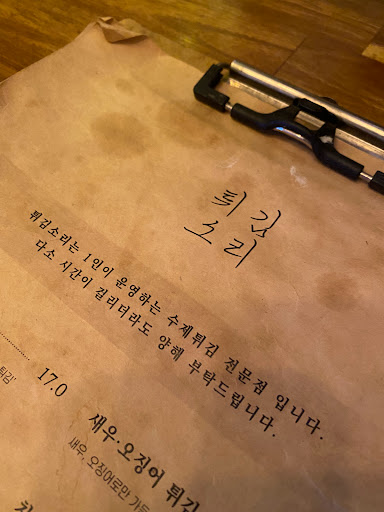 튀김
소리
튀김소리는 1인이 운영하는 수제튀김 전문점 입니다.
다소 시간이 걸리더라도 양해 부탁드립니다.
튀김'
17.0
새우·오징어 튀김
새우, 오징어로만